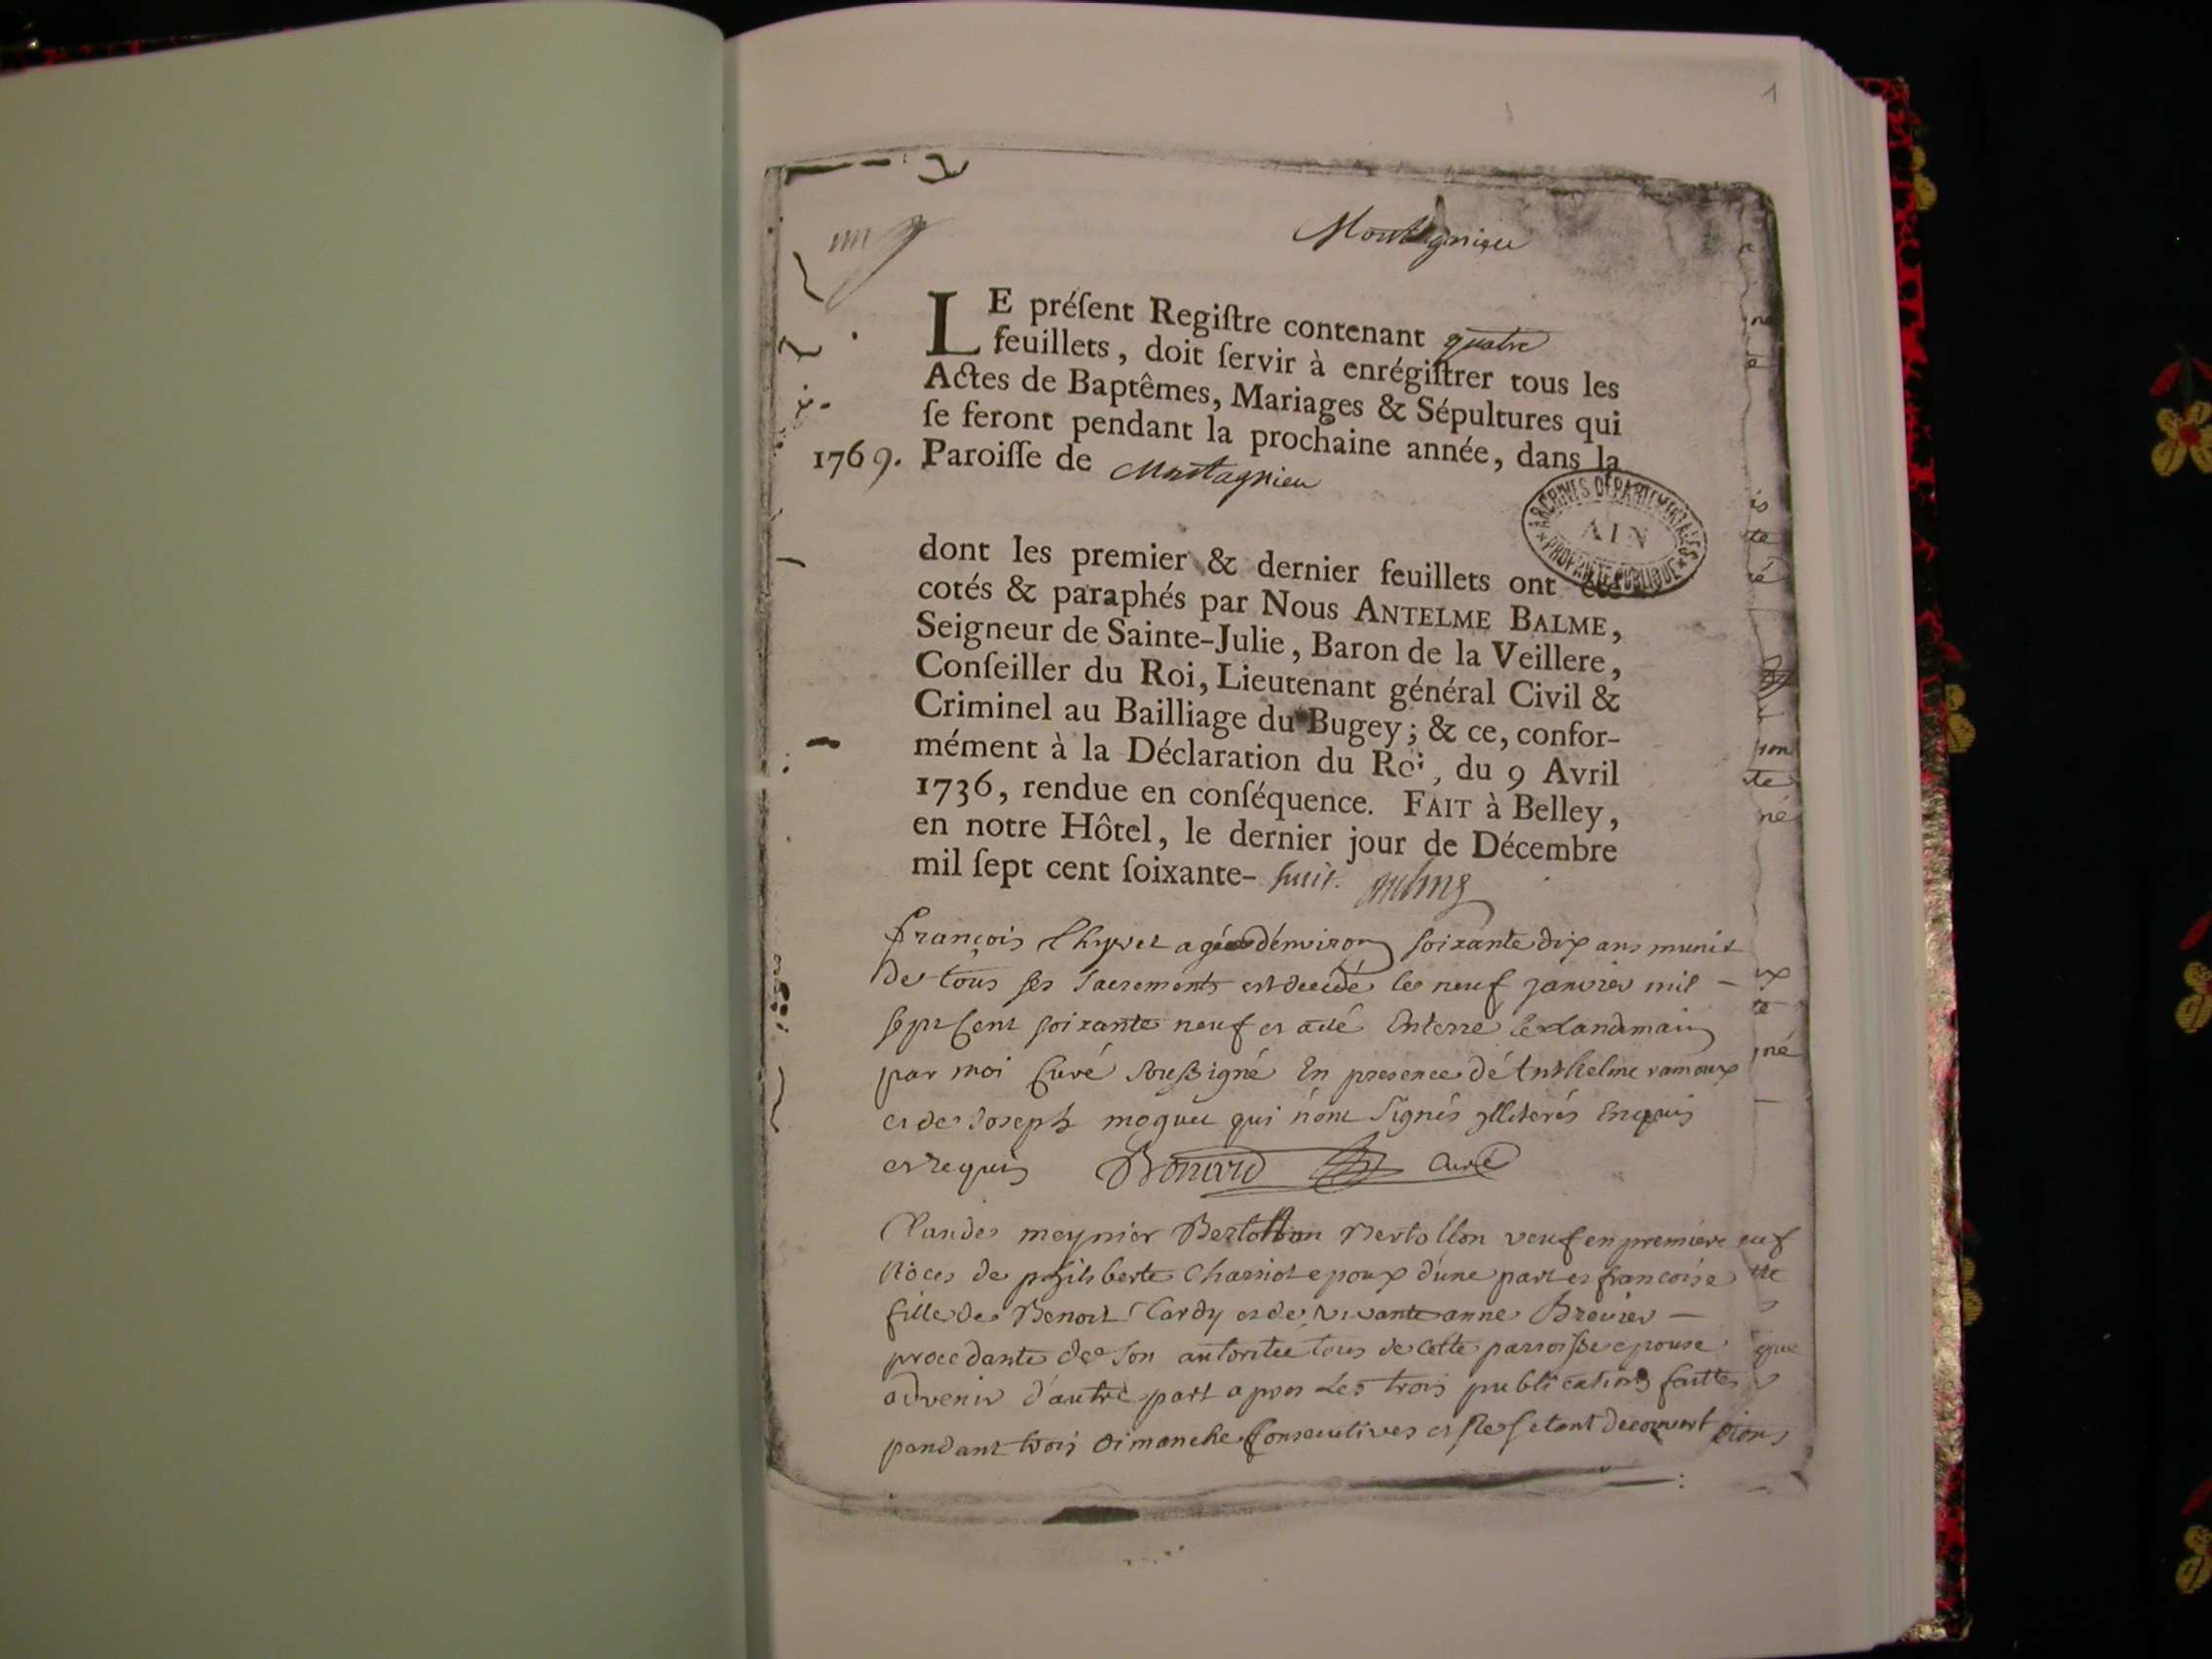 1
Montagnieu
LE préſent Regiſtre contenant quatre
feuillets, doit ſervir à enrégiſtrer tous les
Actes de Baptêmes, Mariages & Sépultures qui
ſe feront pendant la prochaine année, dans la
1769. Paroiſſe de Montagnieu
ARCHIVES DÉPARTEMENTALES
AIN
PROPRIÉTÉ PUBLIQUE
dont les premier & dernier feuillets ont été
cotés & paraphés par Nous ANTELME BALME,
Seigneur de Sainte-Julie, Baron de la Veillere,
Conſeiller du Roi, Lieutenant général Civil &
Criminel au Bailliage du Bugey; & ce, confor-
mément à la Déclaration du Roi, du 9 Avril
1736, rendue en conſéquence. FAIT à Belley,
en notre Hôtel, le dernier jour de Décembre
mil ſept cent ſoixante- huit.
françois agé d'environ soixante dix ans munit
de tous ses sacrements est decedé le neuf janvier mil -
sept cent soixante neuf et a été enterré le landemain
par moi curé soussigné en presence d'Anthelme ramoux
et de Joseph moguet qui n'ont signés illiterés enquis
et requis Bonard curé
Claude meynier Bertollon veuf en premiere
noces de philiberte epoux d'une part et francoise
fille de Benoit Tardy et de vivante anne Brevier -
procedante de son autoritée tous de cette parroisse epouse
advenir d'autre part apres les trois publications faittes
pendant trois dimanche consecutives et ne s'etant decouvert